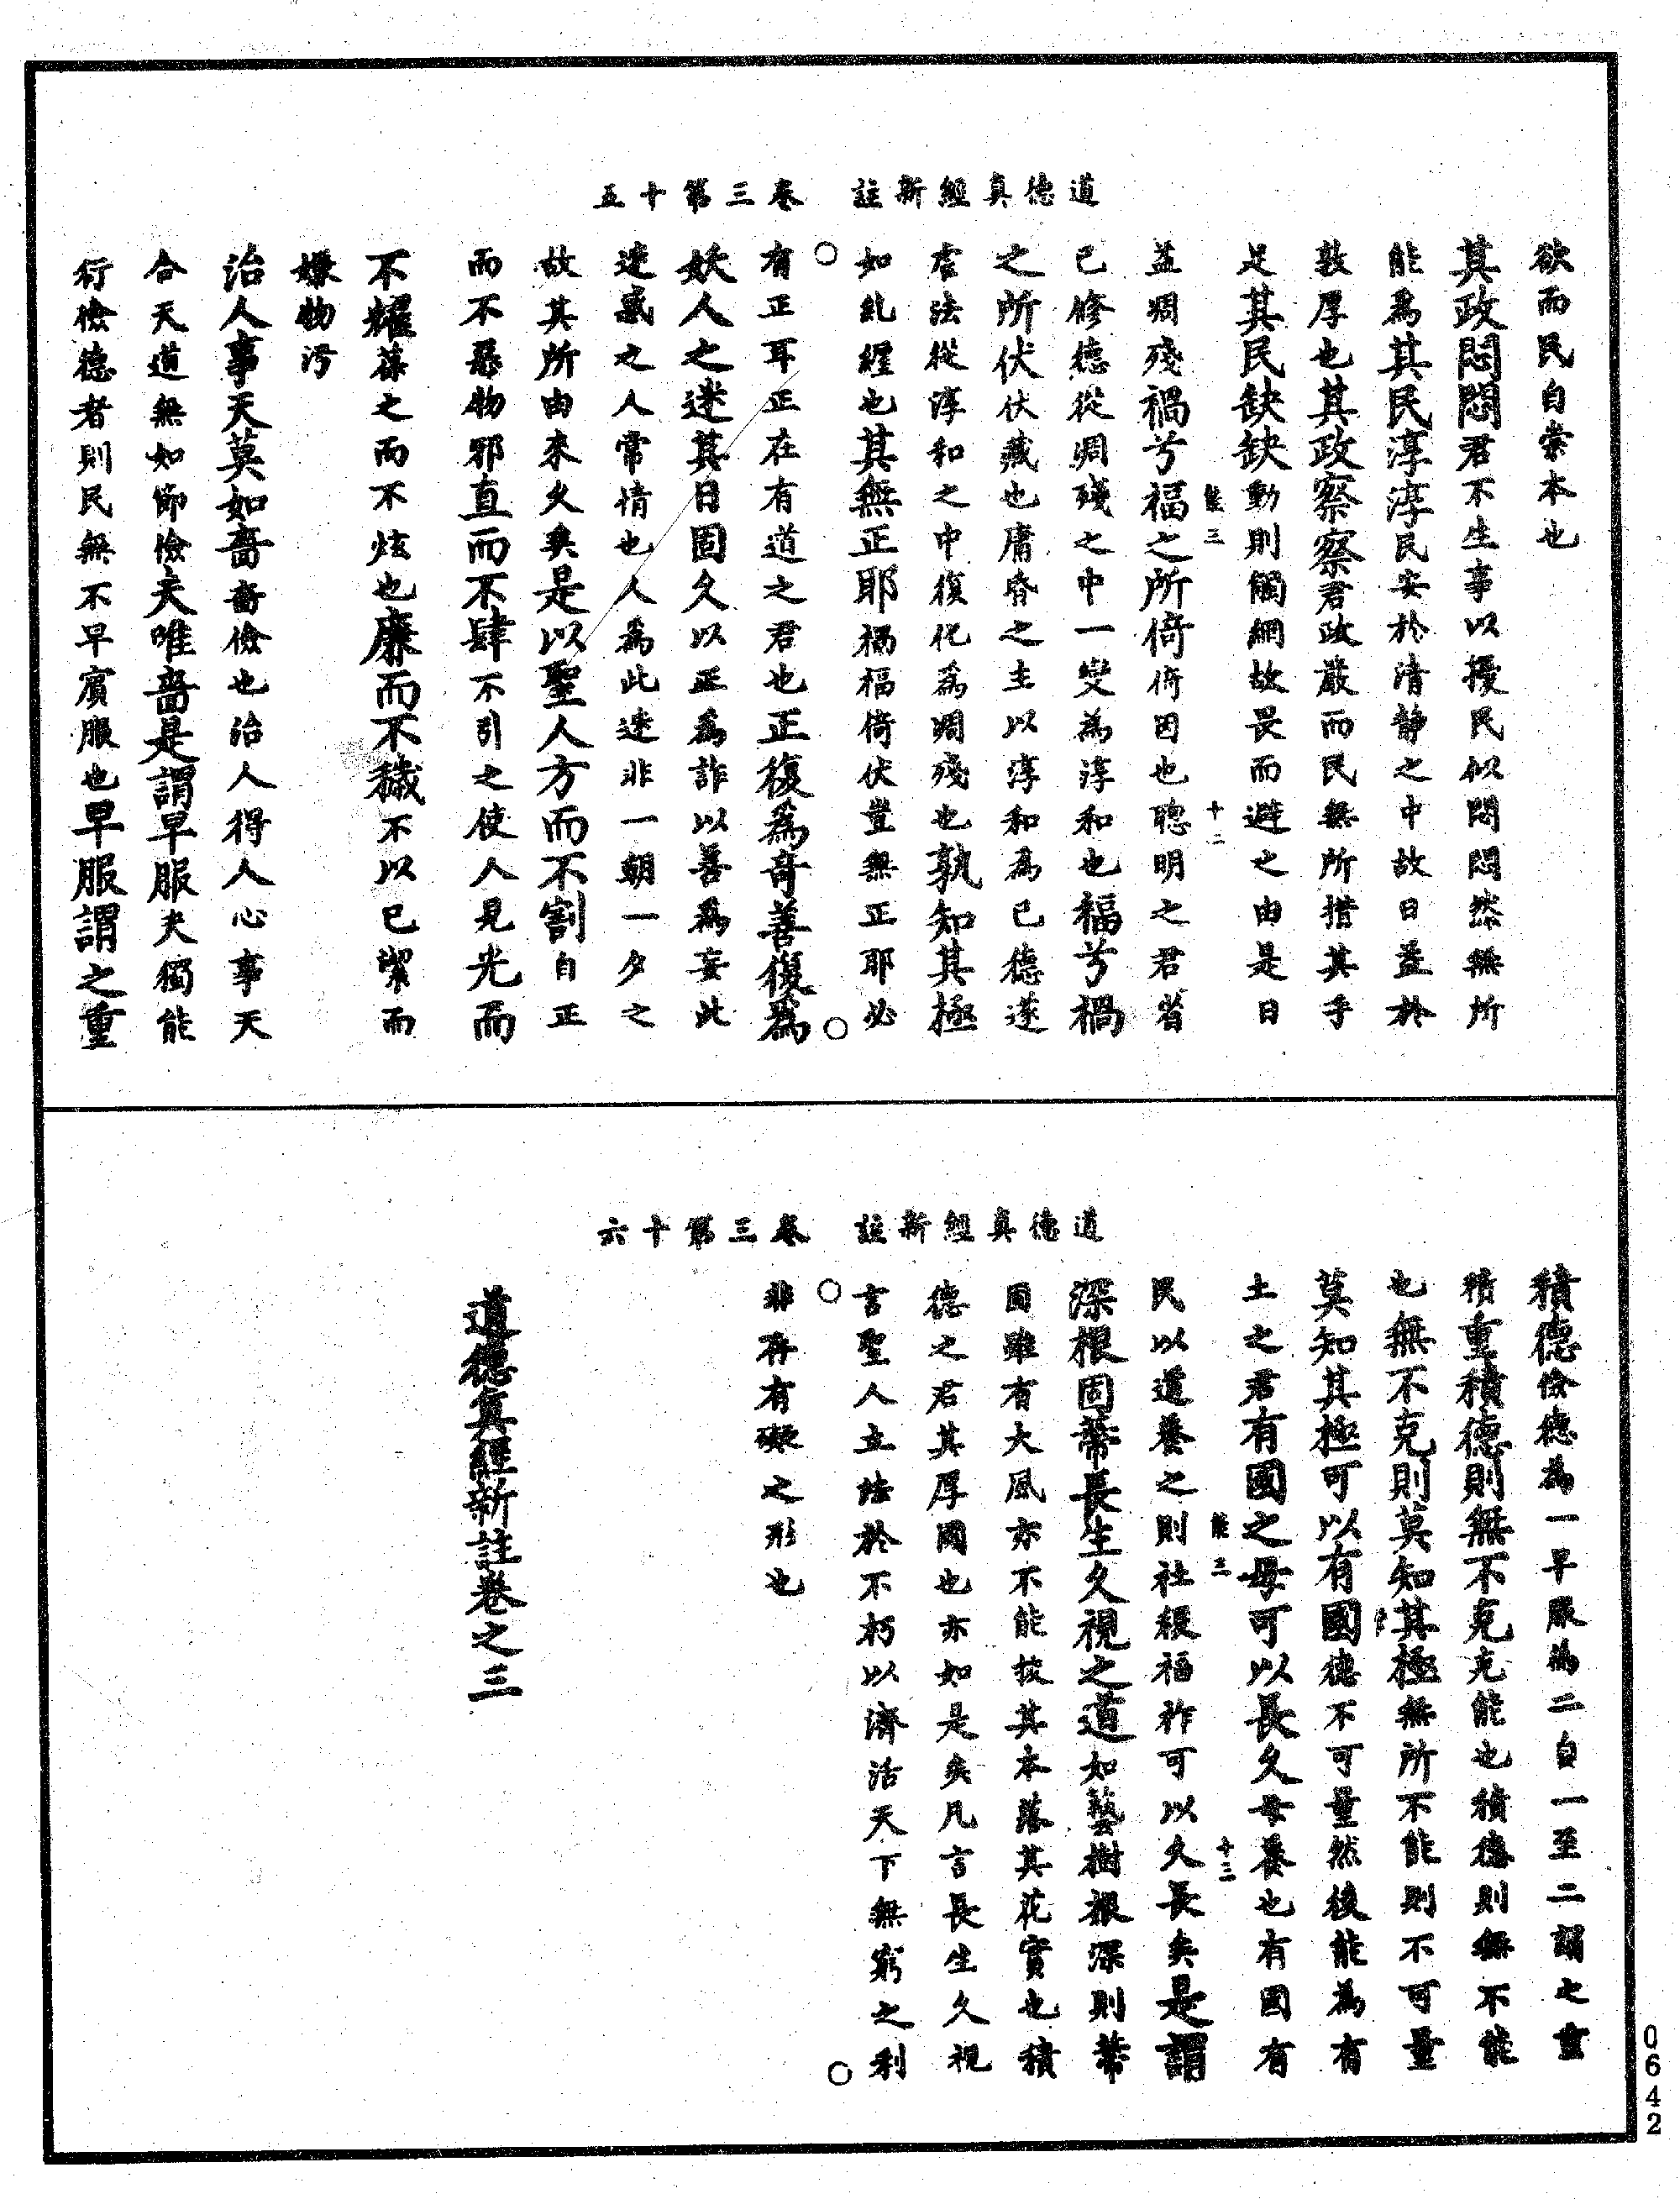 道德真經新註　卷三第十五
欲而民自崇本也
其政悶悶君不生事以擾民似悶悶然無所
能為其民淳淳民安於清靜之中故日益於
敦厚也其政察察君政嚴而民無所措其手
足其民缺缺動則觸網故畏而避之由是日
益凋殘禍兮福之所倚倚因也聰明之君省
能三　十二
已修德從凋殘之中一變為淳和也福兮禍
之所伏伏藏也庸昏之主以淳和為已德遂
虐法從淳和之中復化為凋殘也孰知其極
如糺纆也其無正耶禍福倚伏豈無正耶必
有正耳正在有道之君也正復為奇善復為
妖人之迷其日固久以正為詐以善為妄此
迷惑之人常情也人為此迷非一朝一夕之
故其所由來久矣是以聖人方而不割自正
而不忌物邪直而不肆不引之使人見光而
不耀葆之而不炫也廉而不穢不以已潔而
嫌物污
治人事天莫如嗇嗇儉也治人得人心事天
合天道無如節儉夫唯嗇是謂早服夫獨能
行儉德者則民無不早賓服也早服謂之重
道德真經新註　卷三第十六
積德儉德為一早服為二自一至二謂之重
積重積德則無不克克能也積德則無不能
也無不克則莫知其極無所不能則不可量
莫知其極可以有國德不可量然後能為有
土之君有國之母可以長久母養也有國有
能三　十三
民以道養之則社稷福祚可以久長矣是謂
深根固蔕長生久視之道如藝樹根深則蔕
固雖有大風亦不能拔其本落其花實也積
德之君其厚國也亦如是矣凡言長生久視
言聖人立法於不朽以濟活天下無窮之利
非再有礙之形也
道德真經新註卷之三
0642